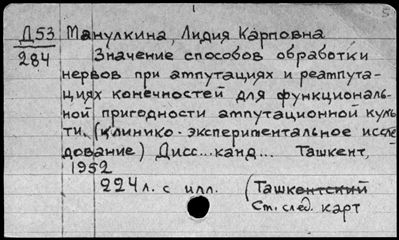 Д53 Манулкина, Лидия Карповна
284 Значение способов обработки
нервов при ампутациях и реампута-
циях конечностей для функциональ-
ной пригодности ампутационной куль-
ти. (клинико-экспериментальное иссле-
дование) Дисс... канд... Ташкент,
1952
224 л. с илл. (Ташкентский
См. след. карт